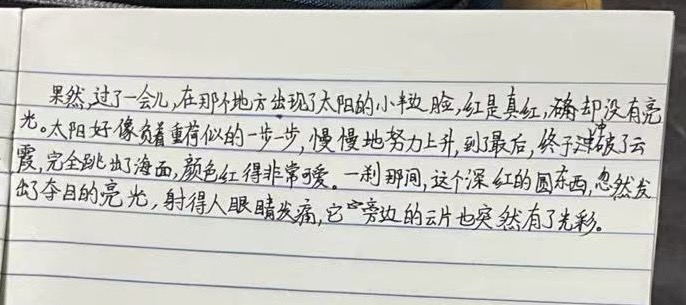 果然,过了一会儿,在那个地方出现了太阳的小半边脸,红是真红,确却没有亮
光。太阳好像负着重荷似的一步一步,慢慢地努力上升,到了最后,终于冲破了云
霞,完全跳出了海面,颜色红得非常可爱。一刹那间,这个深红的圆东西,忽然发
出了夺目的亮光,射得人眼睛发痛,它旁边的云片也突然有了光彩。